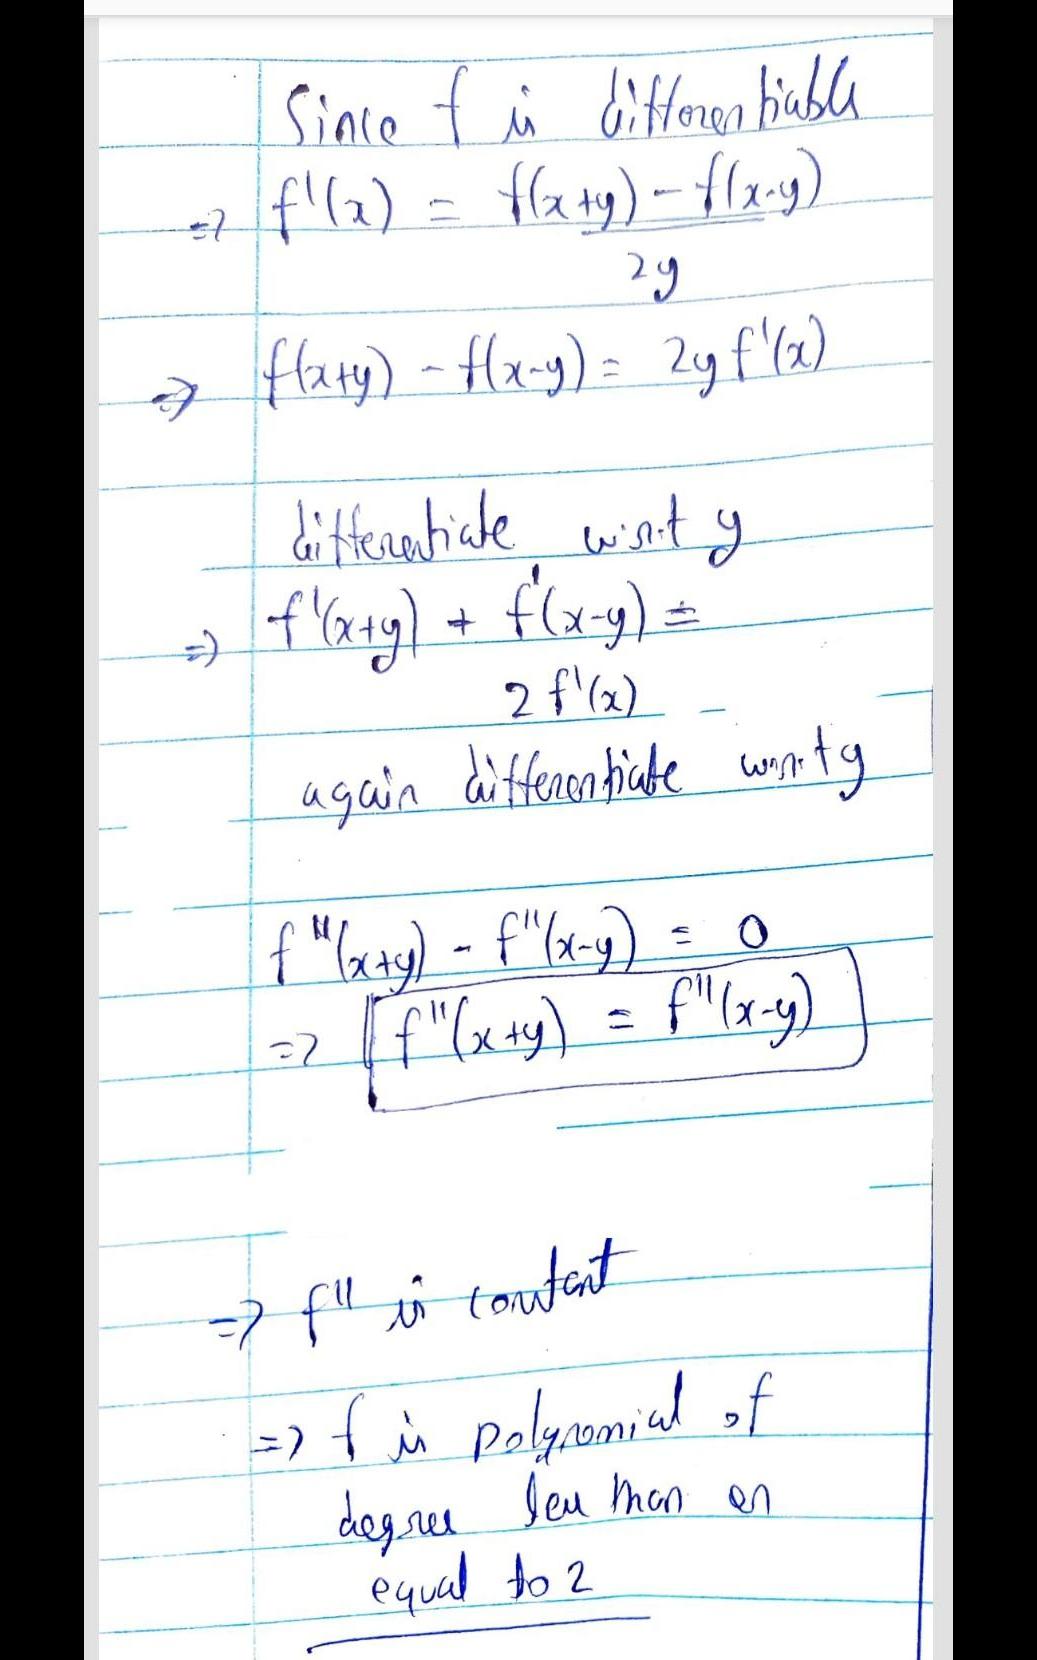 Since f is differentiable
=> f'(x) = f(x+y) - f(x-y)
2y
=> f(x+y) - f(x-y) = 2y f'(x)
differentiate w.r.t y
=> f'(x+y) + f'(x-y) =
2 f'(x)
again differentiate w.r.t y
f''(x+y) - f''(x-y) = 0
=> f''(x+y) = f''(x-y)
=> f'' is constant
=> f is polynomial of
degree less than or
equal to 2